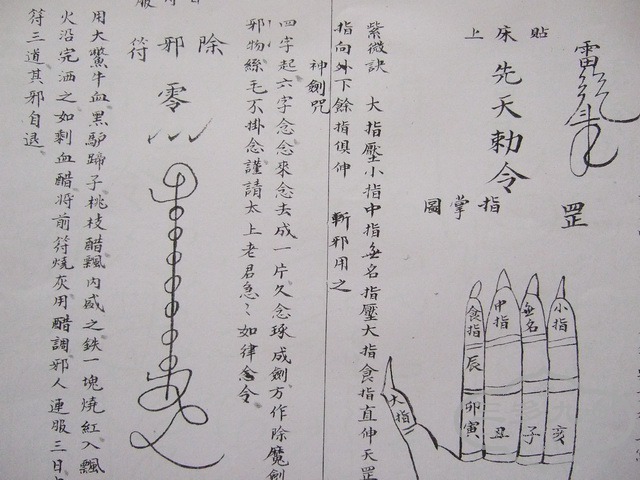 貼床上
雷
先天勅令
罡
指掌圖
小指
無名
中指
食指
大指
辰
卯寅
丑
子
亥
紫微訣 大指壓小指中指無名指壓大指食指直伸天罡
指向外下餘指俱伸 斬邪用之
神劍咒
四字起六字念念來念去成一片久念琢成劍方作除魔劍
邪物絲毛不掛念謹請太上老君急〻如律令
除邪符
零
用大鱉牛血黑驢蹄子桃枝醋瓢內盛之鉄一塊燒紅入瓢
火沿完洒之如剩血醋將前符燒灰用醋調邪人連服三日
符三道其邪自退